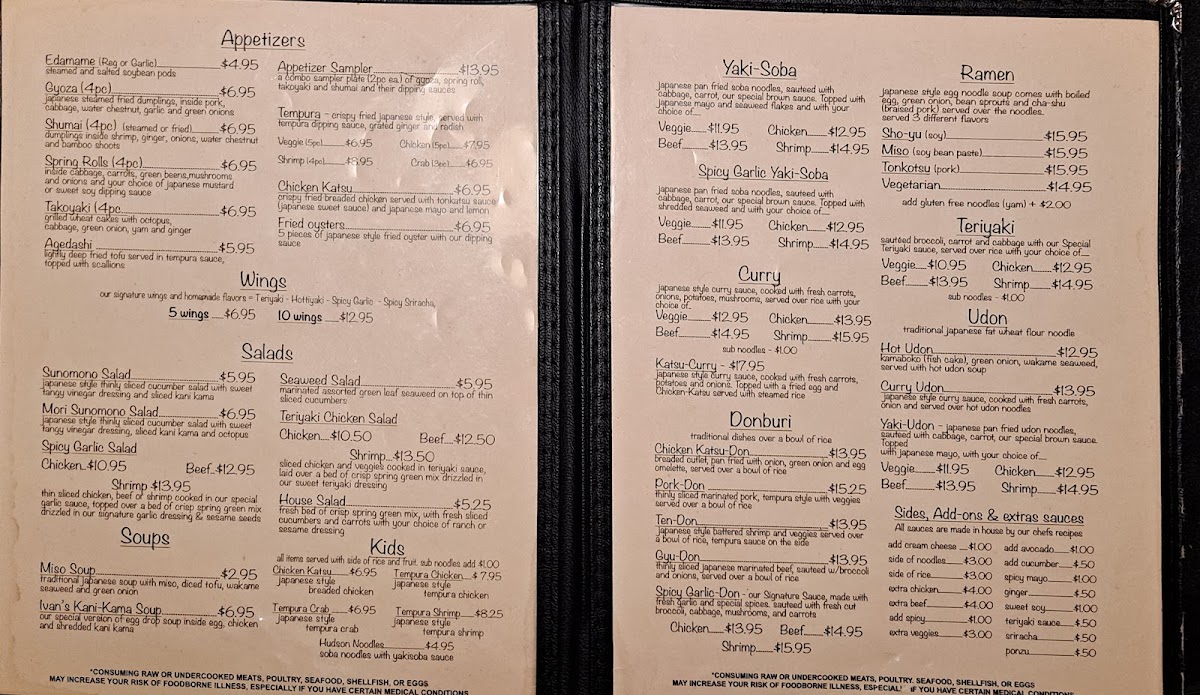 Appetizers
Edamame (Reg or Garlic)____$4.95
steamed and salted soybean pods
Gyoza (4pc)____$6.95
japanese steamed fried dumplings, inside pork,
cabbage, water chestnut, garlic and green onions
Shumai (4pc) (steamed or fried)____$6.95
dumplings inside shrimp, ginger, onions, water chestnut
and bamboo shoots
Spring Rolls (4pc)____$6.95
inside cabbage, carrots, green beens,mushrooms
and onions and your choice of japanese mustard
or sweet soy dipping sauce
Takoyaki (4pc____$6.95
grilled wheat cakes with octopus,
cabbage, green onion, yam and ginger
Agedashi____$5.95
lightly deep fried tofu served in tempura sauce,
topped with scallions
Appetizer Sampler____$13.95
a combo sampler plate (2pc ea.) of gyoza, spring roll,
takoyaki and shumai and their dipping sauces
Tempura - crispy fried japanese style, served with
tempura dipping sauce, grated ginger and radish
Veggie (5pc)____$6.95 Chicken (5pc)____$7.95
Shrimp (4pc)____$8.95 Crab (3pc)____$6.95
Chicken Katsu____$6.95
crispy fried breaded chicken served with tonkatsu sauce
(japanese sweet sauce) and japanese mayo and lemon
Fried oysters____$6.95
5 pieces of japanese style fried oyster with our dipping
sauce
Wings
our signature wings and homemade flavors = Teriyaki - Hottiyaki - Spicy Garlic - Spicy Sriracha,
5 wings ___$6.95 10 wings ___$12.95
Salads
Sunomono Salad____$5.95
japanese style thinly sliced cucumber salad with sweet
tangy vinegar dressing and sliced kani kama
Mori Sunomono Salad____$6.95
japanese style thinly sliced cucumber salad with sweet
tangy vinegar dressing, sliced kani kama and octopus
Spicy Garlic Salad
Chicken__$10.95 Beef__$12.95
Shrimp $13.95
thin sliced chicken, beef or shrimp cooked in our special
garlic sauce, topped over a bed of crisp spring green mix
drizzled in our signature garlic dressing & sesame seeds
Seaweed Salad____$5.95
marinated assorted green leaf seaweed on top of thin
sliced cucumbers
Teriyaki Chicken Salad
Chicken__$10.50 Beef__$12.50
Shrimp__$13.50
sliced chicken and veggies cooked in teriyaki sauce,
laid over a bed of crisp spring green mix drizzled in
our sweet teriyaki dressing
House Salad____$5.25
fresh bed of crisp spring green mix, with fresh sliced
cucumbers and carrots with your choice of ranch or
sesame dressing
Soups
Miso Soup____$2.95
traditional japanese soup with miso, diced tofu, wakame
seaweed and green onion
Ivan's Kani-Kama Soup____$6.95
our special version of egg drop soup inside egg, chicken
and shredded kani kama
Kids
all items served with side of rice and fruit. sub noodles add $1.00
Chicken Katsu____$6.95
japanese style
breaded chicken
Tempura Chicken__$7.95
japanese style
tempura chicken
Tempura Crab ____$6.95
japanese style
tempura crab
Tempura Shrimp____$8.25
japanese style
tempura shrimp
Hudson Noodles____$4.95
soba noodles with yakisoba sauce
*CONSUMING RAW OR UNDERCOOKED MEATS, POULTRY, SEAFOOD, SHELLFISH, OR EGGS
MAY INCREASE YOUR RISK OF FOODBORNE ILLNESS, ESPECIALLY IF YOU HAVE CERTAIN MEDICAL CONDITIONS
Yaki-Soba
japanese pan fried soba noodles, sauteed with
cabbage, carrot, our special brown sauce. Topped with
japanese mayo and seaweed flakes and with your
choice of....
Veggie__$11.95 Chicken____$12.95
Beef____$13.95 Shrimp__$14.95
Spicy Garlic Yaki-Soba
japanese pan fried soba noodles, sauteed with
cabbage, carrot, our special brown sauce. Topped with
shredded seaweed and with your choice of....
Veggie__$11.95 Chicken____$12.95
Beef____$13.95 Shrimp__$14.95
Curry
japanese style curry sauce, cooked with fresh carrots,
onions, potatoes, mushrooms, served over rice with your
choice of...
Veggie____$12.95 Chicken____$13.95
Beef____$14.95 Shrimp____$15.95
sub noodles - $1.00
Katsu-Curry - $17.95
japanese style curry sauce, cooked with fresh carrots,
potatoes and onions. Topped with a fried egg and
Chicken-Katsu served with steamed rice
Donburi
traditional dishes over a bowl of rice
Chicken Katsu-Don____$13.95
breaded cutlet, pan fried with onion, green onion and egg
omelette, served over a bowl of rice
Pork-Don____$15.25
thinly sliced marinated pork, tempura style with veggies
served over a bowl of rice
Ten-Don____$13.95
japanese style battered shrimp and veggies served over
a bowl of rice, tempura sauce on the side
Gyu-Don____$13.95
thinly sliced japanese marinated beef, sauteed w/broccoli
and onions, served over a bowl of rice
Spicy Garlic-Don - our Signature Sauce, made with
fresh garlic and special spices. sauteed with fresh cut
broccoli, cabbage, mushrooms, and carrots
Chicken____$13.95 Beef____$14.95
Shrimp____$15.95
Ramen
japanese style egg noodle soup comes with boiled
egg, green onion, bean sprouts and cha-shu
(braised pork) served over the noodles.
served 3 different flavors
Sho-yu (soy)____$15.95
Miso (soy bean paste)____$15.95
Tonkotsu (pork)____$15.95
Vegetarian____$14.95
add gluten free noodles (yam) + $2.00
Teriyaki
sautéed broccoli, carrot and cabbage with our Special
Teriyaki sauce, served over rice with your choice of....
Veggie__$10.95 Chicken____$12.95
Beef____$13.95 Shrimp____$14.95
sub noodles - $1.00
Udon
traditional japanese fat wheat flour noodle
Hot Udon____$12.95
kamaboko (fish cake), green onion, wakame seaweed,
served with hot udon soup
Curry Udon____$13.95
japanese style curry sauce, cooked with fresh carrots,
onion and served over hot udon noodles
Yaki-Udon - japanese pan fried udon noodles,
sauteed with cabbage, carrot, our special brown sauce.
Topped
with japanese mayo, with your choice of....
Veggie____$11.95 Chicken____$12.95
Beef____$13.95 Shrimp____$14.95
Sides, Add-ons & extras sauces
All sauces are made in house by our chefs recipes
add cream cheese __$1.00
side of noodles____$3.00
side of rice____$3.00
extra chicken____$4.00
extra beef____$4.00
add spicy____$1.00
extra veggies____$3.00
add avocado__$1.00
add cucumber__$.50
spicy mayo____$1.00
ginger____$.50
sweet soy____$1.00
teriyaki sauce__$.50
sriracha____$.50
ponzu____$.50
*CONSUMING RAW OR UNDERCOOKED MEATS, POULTRY, SEAFOOD, SHELLFISH, OR EGGS
MAY INCREASE YOUR RISK OF FOODBORNE ILLNESS, IF YOU HAVE CERTAIN MEDICAL CONDITIONS